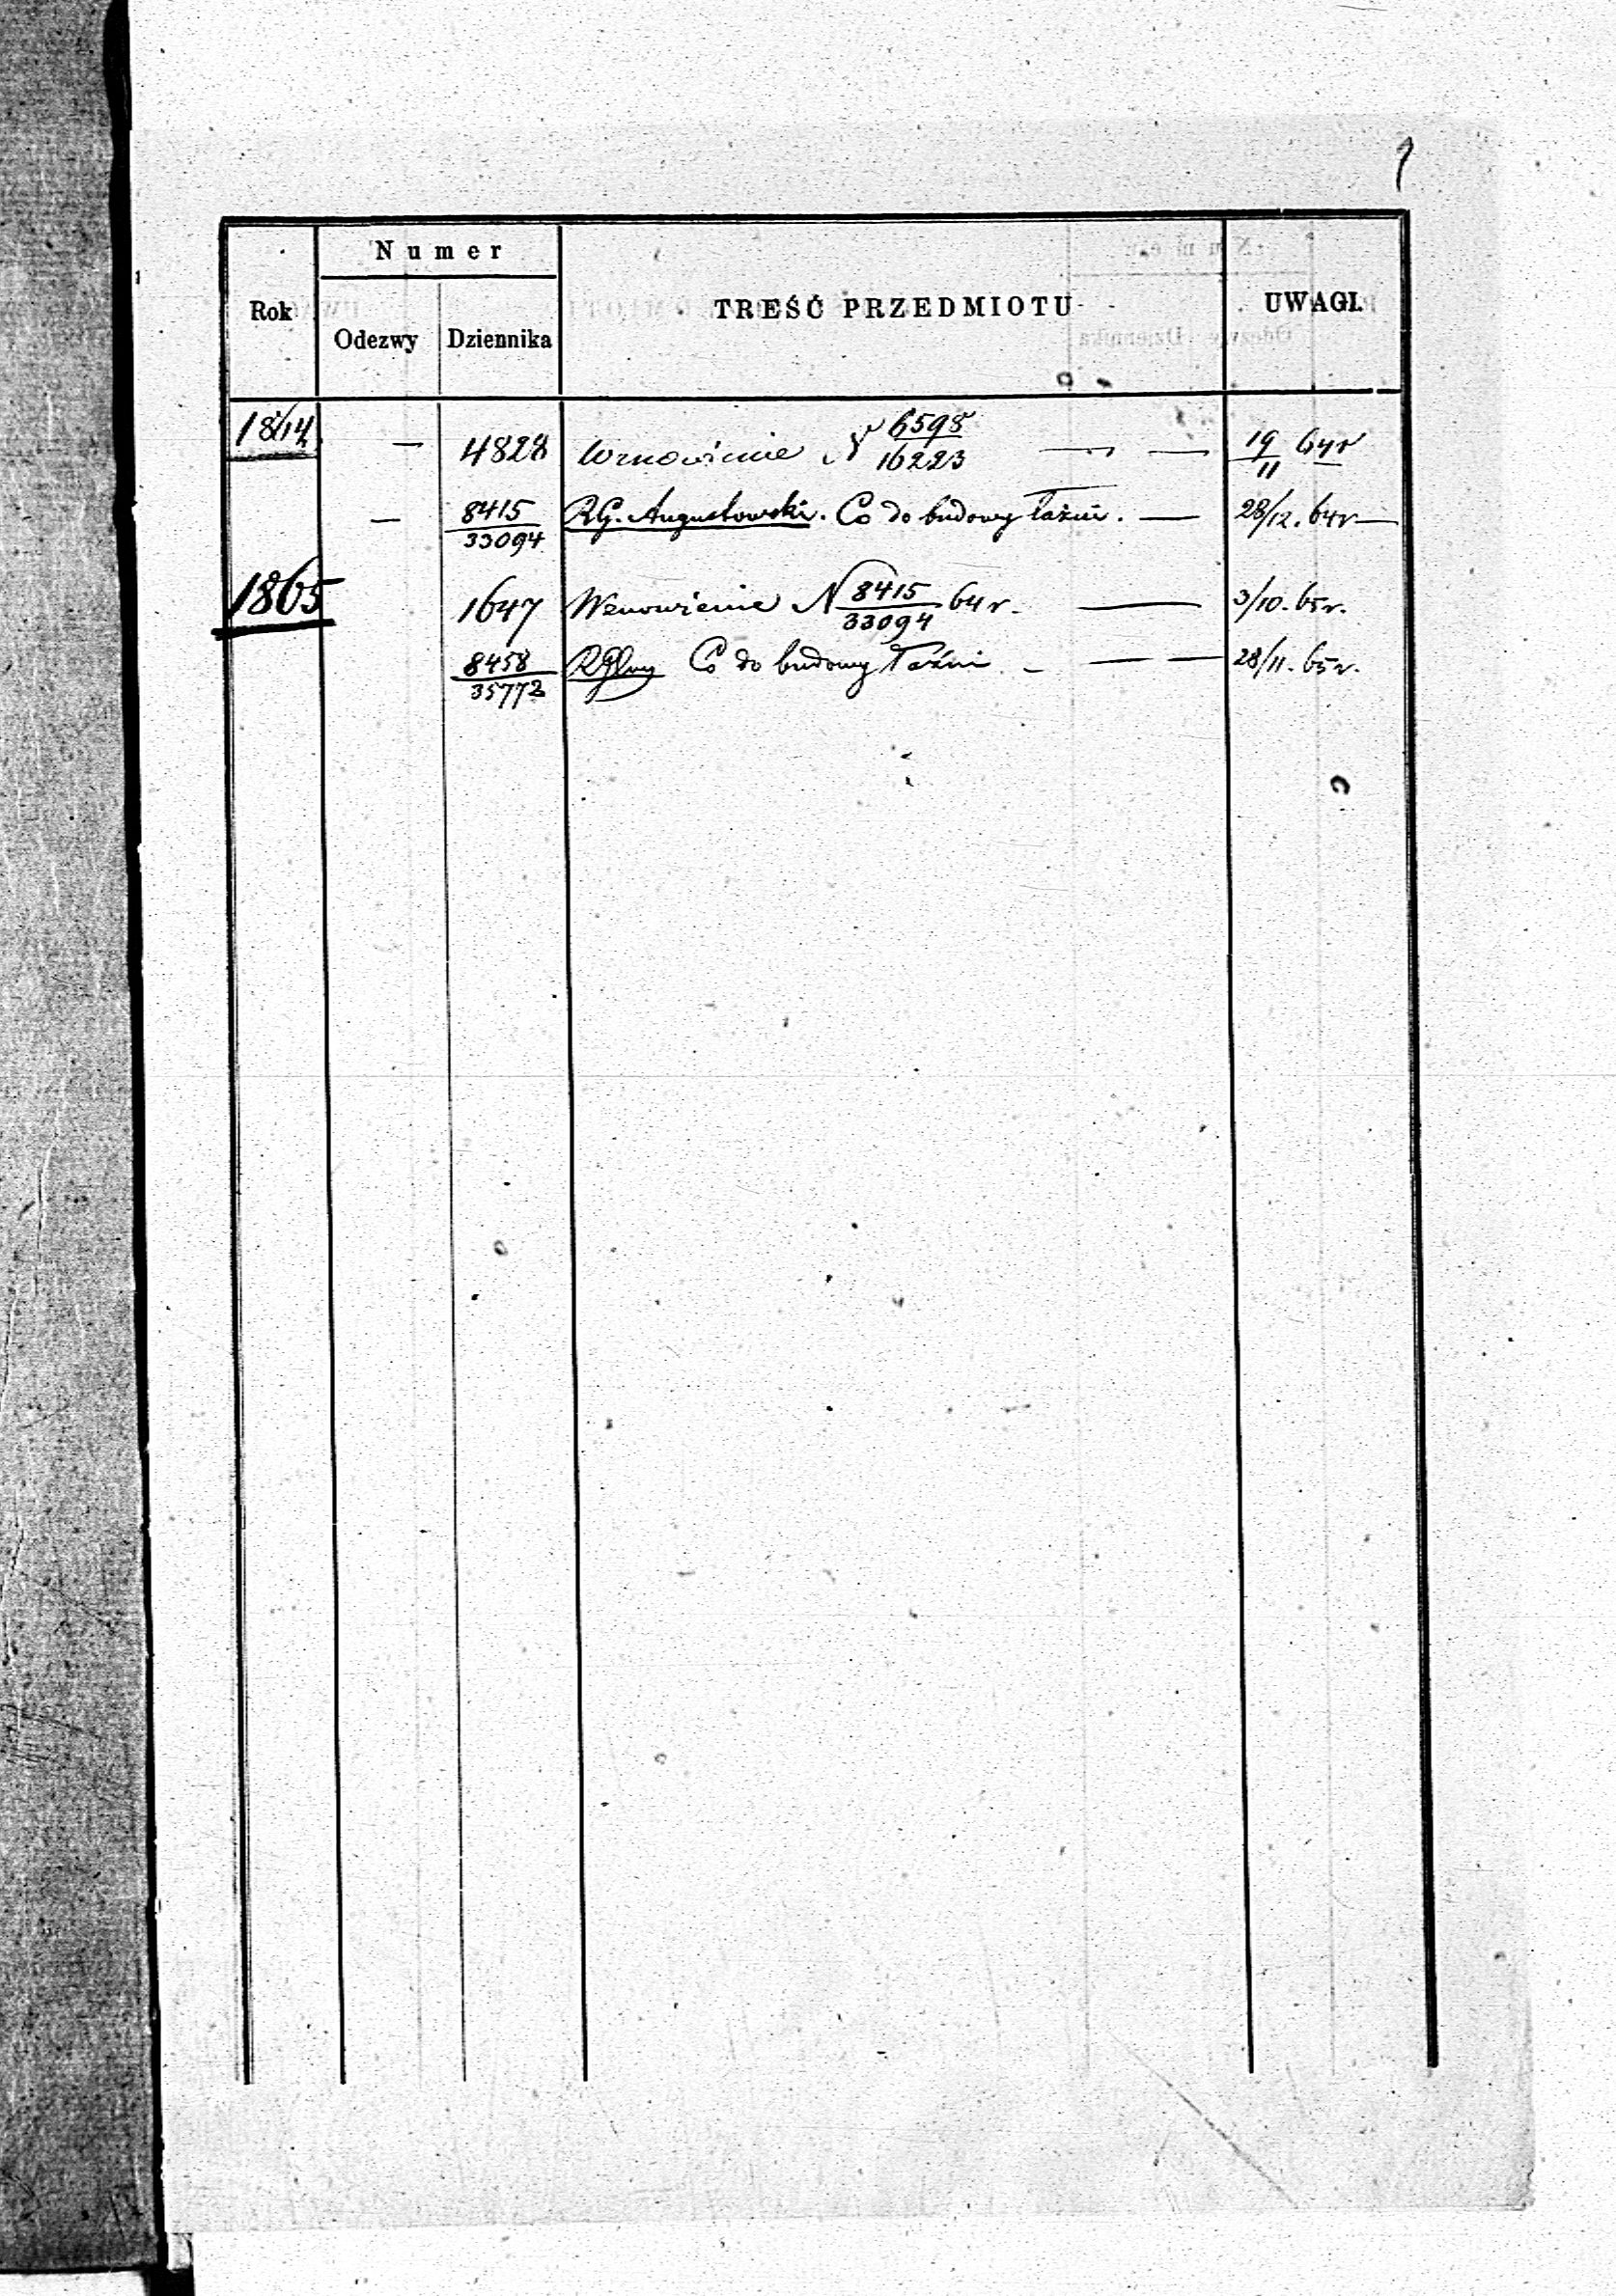 Numer
Rok Odezwy Dziennika TREŚĆ PRZEDMIOTU UWAGI.
1864 — 4828 Wznowienie N 6598/16223 — — 19/11 64 r
— 8415/33094 RG. Augustowski. Co do budowy łaźni. — 28/12. 64 r —
1865 1647 Wznowienie N 8415/33094 64 r. — 3/10. 65 r.
8458/35772 Co do budowy łaźni — — — 28/11. 65 r.